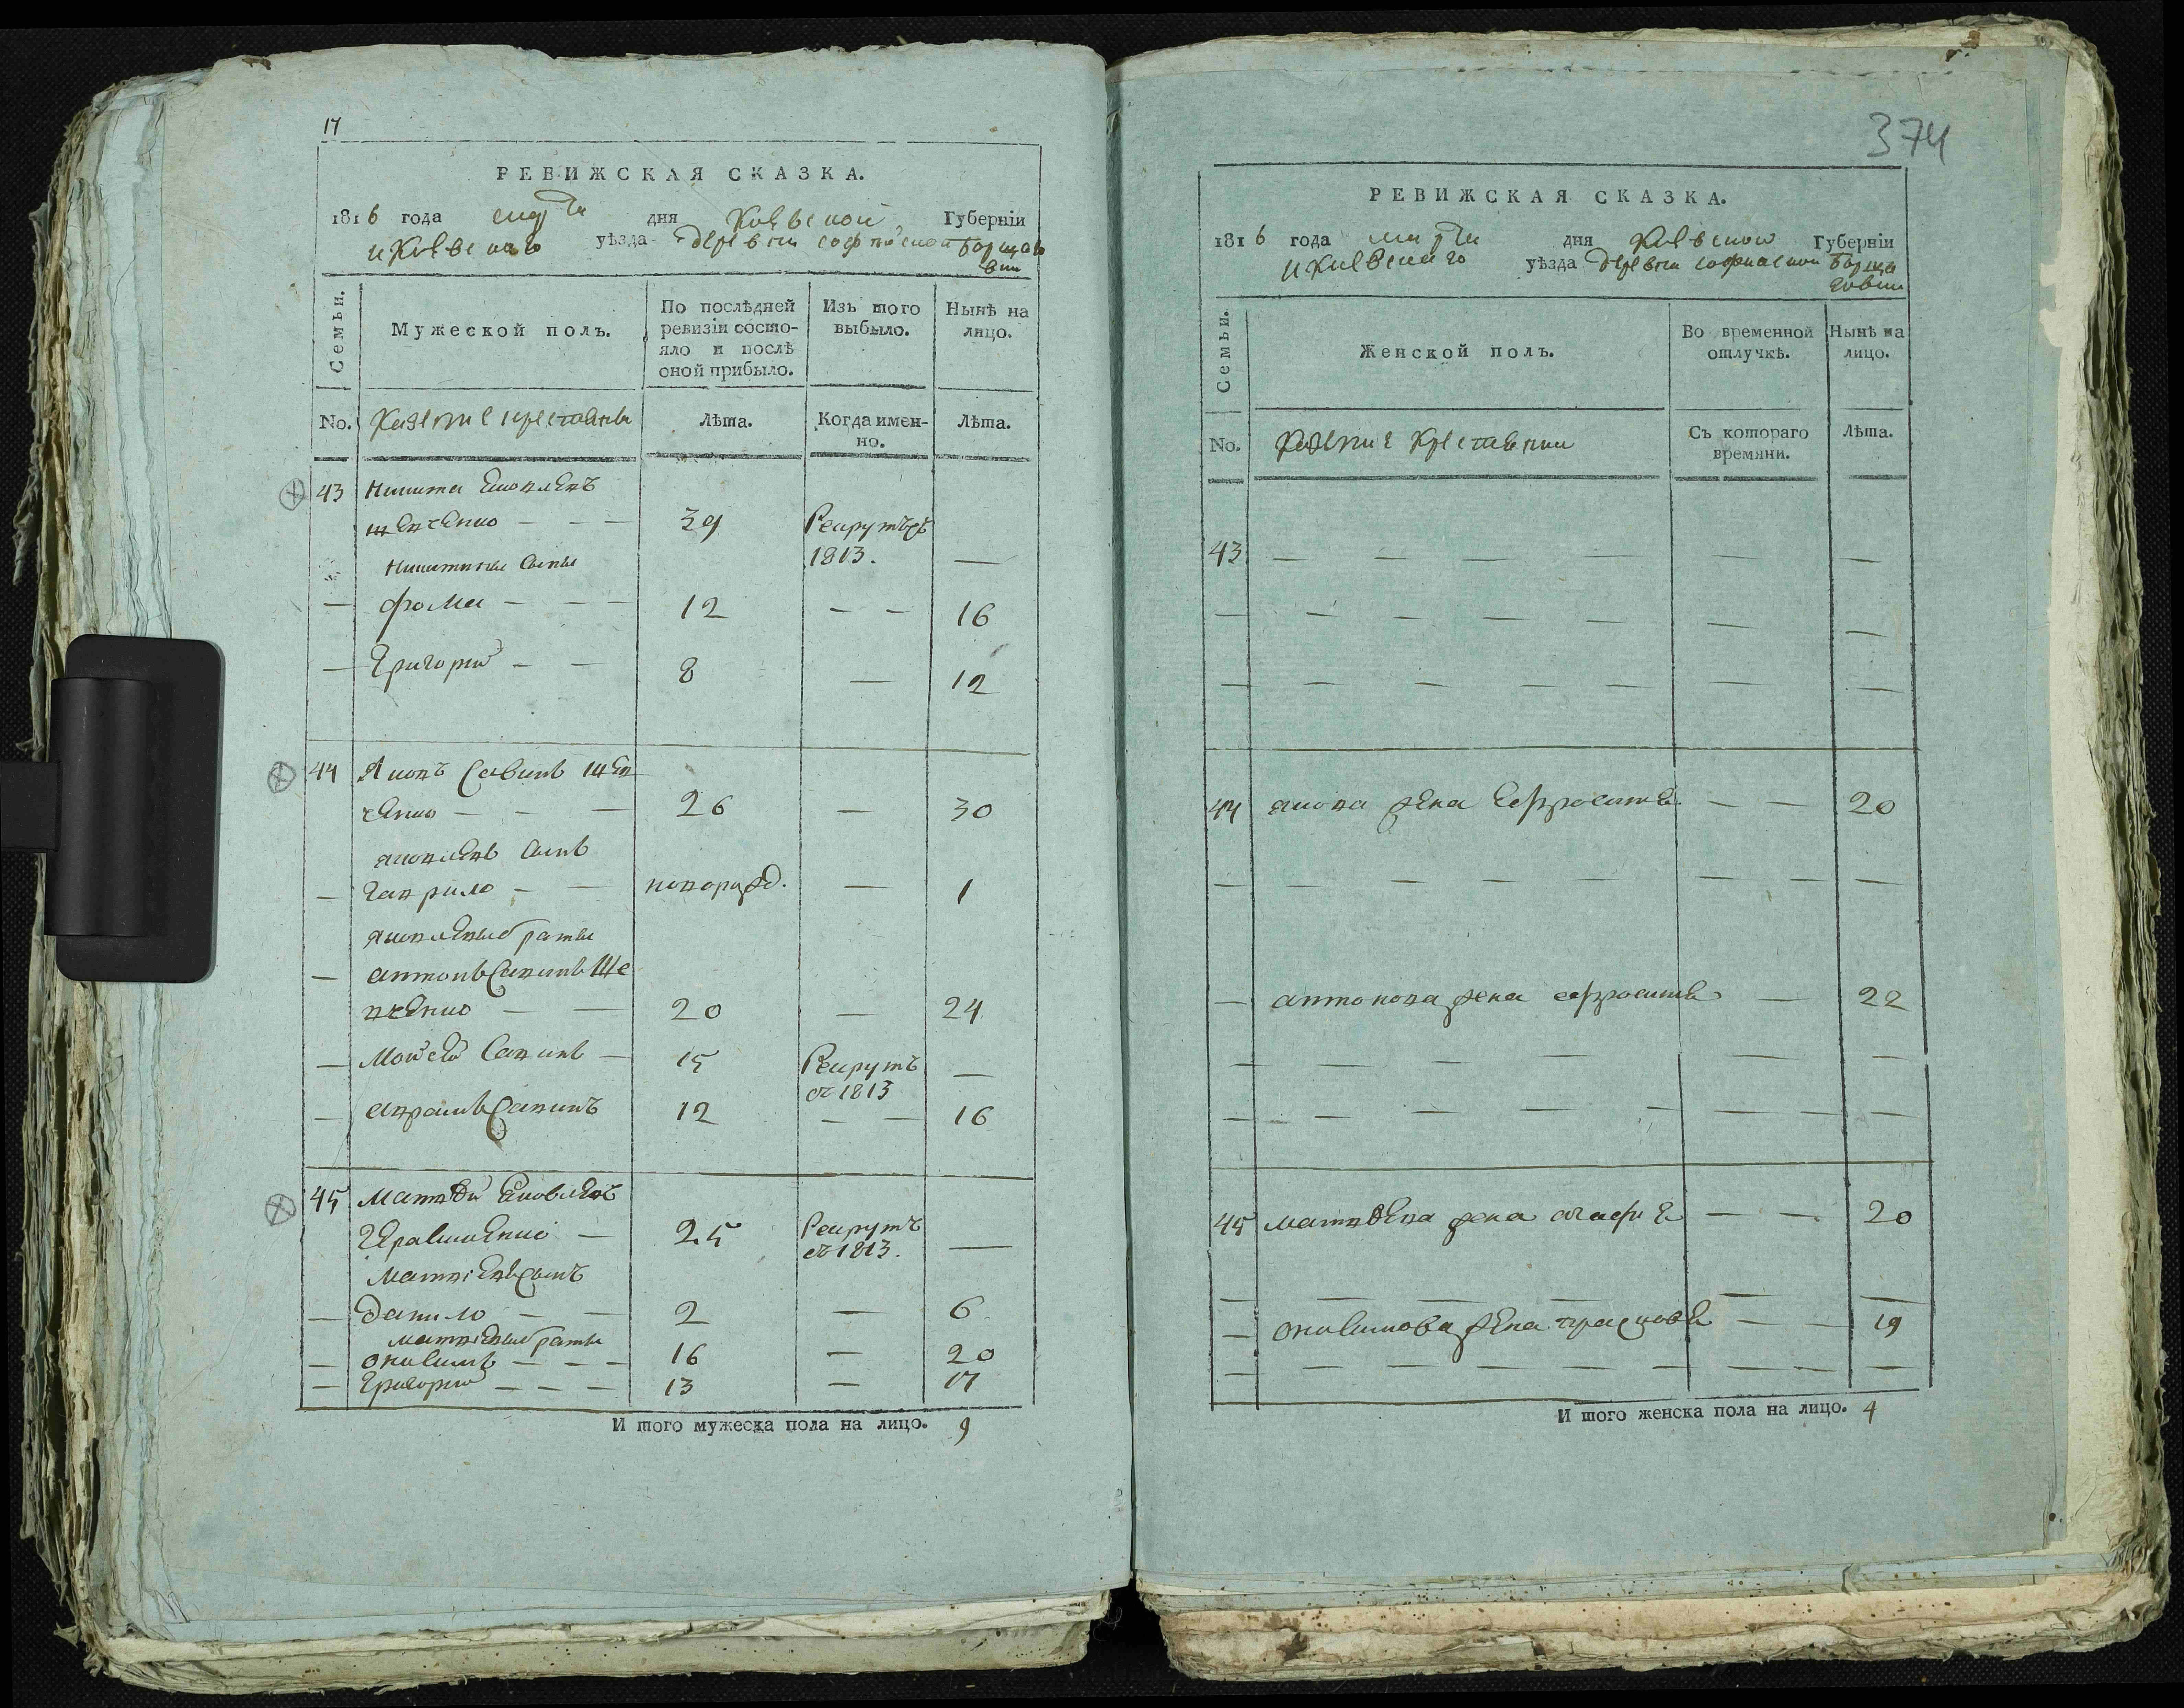 17
РЕВИЖСКАЯ СКАЗКА.
1816 года марта дня Киевской Губернiи
и Киевскаго уѣзда деревни софиской Борщаго
вки
Семьи.
Мужеской полъ.
По послѣдней ревизiи состо-
яло и послѣ
оной прибыло.
Изъ того
выбыло.
Нынѣ на
лицо.
No. Казенние крестяне
Лѣта.
Когда имен-
но.
Лѣта.
43 Никита Яковлевъ
шевченко — — — 39 Рекрутъ съ
Никитини сыни 1813. —
— фома — — — 12 — — 16
— Григорий — — 8 — 12
44 Яковъ Савинъ шев
ченко — — — 26 — 30
яковлевъ сынъ
— гаврило — — новорожд. — 1
яковлевы браты
— антонъ Савинъ Ше
вченко — — 20 — 24
— Мойсей Савинъ — 15 Рекрутъ —
съ 1813
— аврамъ Савинъ 12 — — 16
45 матвѣй Яковлевъ
Герасименко — 25 Рекрутъ
съ 1813. —
матвiевъ сынъ
— данило — — 2 — 6
матвiевы браты
— онисимъ — — — 16 — 20
— Григорий — — — 13 — 17
И того мужеска пола на лицо. 9
374
РЕВИЖСКАЯ СКАЗКА.
1816 года марта дня Киевской Губернiи
и Киевскаго уѣзда деревни софиской Борща
говки
Семьи.
Женской полъ.
Во временной
отлучкѣ.
Нынѣ на
лицо.
No. Казенние Крестянки
Съ котораго
времяни.
Лѣта.
43 — — — — — —
— — — — — — —
— — — — — — —
44 якова жена Ефросиния — — 20
— — — — — — — —
— антонова жена ефросиния — 22
— — — — — —
— — — — — — — —
45 матвѣева жена агафия — — 20
— — — — — — —
— онисимова жена прасковя — — 19
— — — — — — — — —
И того женска пола на лицо. 4